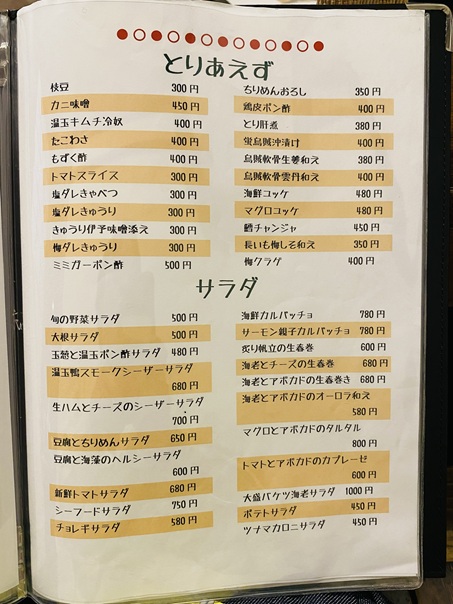 とりあえず
枝豆 300円
カニ味噌 450円
温玉キムチ冷奴 400円
たこわさ 400円
もずく酢 400円
トマトスライス 300円
塩ダレきゃべつ 300円
塩ダレきゅうり 300円
きゅうり伊予味噌添え 300円
梅ダレきゅうり 300円
ミミガーポン酢 500円
ちりめんおろし 350円
鶏皮ポン酢 400円
とり肝煮 380円
蛍烏賊沖漬け 400円
烏賊軟骨生姜和え 380円
烏賊軟骨雲丹和え 400円
海鮮コッケ 480円
マグロコッケ 480円
鱈チャンジャ 450円
長いも梅しそ和え 350円
梅クラゲ 400円
サラダ
旬の野菜サラダ 500円
大根サラダ 500円
玉葱と温玉ポン酢サラダ 480円
温玉鴨スモークシーザーサラダ
680円
生ハムとチーズのシーザーサラダ
700円
豆腐とちりめんサラダ 650円
豆腐と海藻のヘルシーサラダ
600円
新鮮トマトサラダ 680円
シーフードサラダ 750円
チョレギサラダ 580円
海鮮カルパッチョ 780円
サーモン親子カルパッチョ 780円
炙り帆立の生春巻 600円
海老とチーズの生春巻 680円
海老とアボカドの生春巻き 680円
海老とアボカドのオーロラ和え
580円
マグロとアボカドのタルタル
800円
トマトとアボカドのカプレーゼ
600円
大盛バケツ海老サラダ 1000円
ポテトサラダ 450円
ツナマカロニサラダ 450円